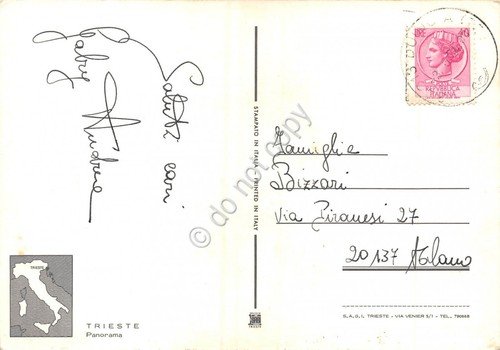 Saluti cari
Gabry
Andrea
TRIESTE
TRIESTE
Panorama
STAMPATO IN ITALIA - PRINTED IN ITALY
© do not copy
POSTE
REPVBBLICA
ITALIANA
Famiglie
Bizzari
Via Piranesi 27
20137 Milano
S.A.D.I. TRIESTE - VIA VENIER 5/1 - TEL. 790668